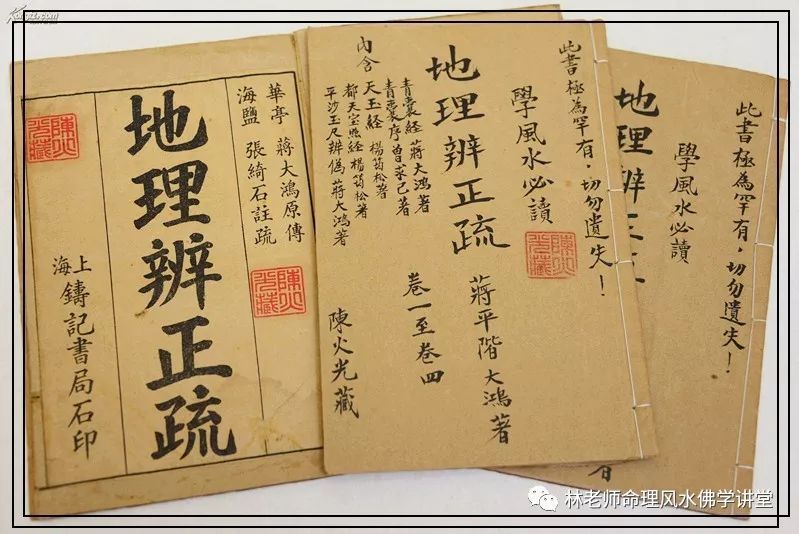 華亭 蔣大鴻原傳
海鹽 張綺石註疏
地理辨正疏
上海鑄記書局石印
陳火光藏
陳火光藏
此書極為罕有，切勿遺失！
學風水必讀
陳火光藏
地理辨正疏
蔣平階大鴻著
卷一至卷四
内含
青囊經蔣大鴻著
青囊序曾求己著
天玉經楊筠松著
都天宝照經楊筠松著
平沙玉尺辨偽蔣大鴻著
陳火光藏
此書極為罕有，切勿遺失！
學風水必讀
地理辨正
林老师命理风水佛学讲堂